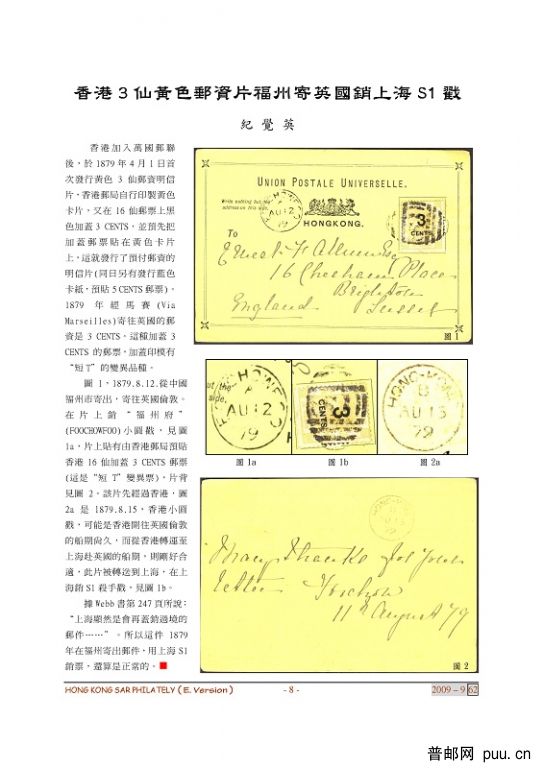 香港 3 仙黃色郵資片福州寄英國銷上海 S1 戳
紀 覺 英
香港加入萬國郵聯
後，於 1879 年 4 月 1 日首
次發行黃色 3 仙郵資明信
片，香港郵局自行印製黃色
卡片，又在 16 仙郵票上黑
色加蓋 3 CENTS，並預先把
加蓋郵票貼在黃色卡片
上，這就發行了預付郵資的
明信片(同日另有發行藍色
卡紙，預貼 5 CENTS 郵票)。
1879 年經馬賽(Via
Marseilles)寄往英國的郵
資是 3 CENTS，這種加蓋 3
CENTS 的郵票，加蓋印模有
“短 T”的變異品種。
圖 1，1879.8.12.從中國
福州市寄出，寄往英國倫敦。
在片上銷“福州府”
(FOOCHOWFOO)小圓戳，見圖
1a，片上貼有由香港郵局預貼
香港 16 仙加蓋 3 CENTS 郵票
(這是“短 T”變異票)，片背
見圖 2。該片先經過香港，圖
2a 是 1879.8.15，香港小圓
戳，可能是香港開往英國倫敦
的船期尚久，而從香港轉運至
上海赴英國的船期，則剛好合
適，此片被轉送到上海，在上
海銷 S1 殺手戳，見圖 1b。
據 Webb 書第 247 頁所說：
“上海顯然是會再蓋銷過境的
郵件……”。所以這件 1879
年在福州寄出郵件，用上海 S1
銷票，還算是正常的。
UNION POSTALE UNIVERSELLE.
Write nothing but the
address on this side.
AU 12
79
3
CENTS
HONGKONG.
To
Ernest F. Allum Esq
16 Chesham Place
Brighton
England Sussex
圖 1
at the
side.
A
AU 12
79
3
CENTS
HONG-KONG
B
AU 15
79
圖 1a
圖 1b
圖 2a
Many thanks for your
letter Foochow
11th August 79
圖 2
HONG KONG SAR PHILATELY ( E. Version )
- 8 -
2009 – 9 62
普邮网 puu.cn